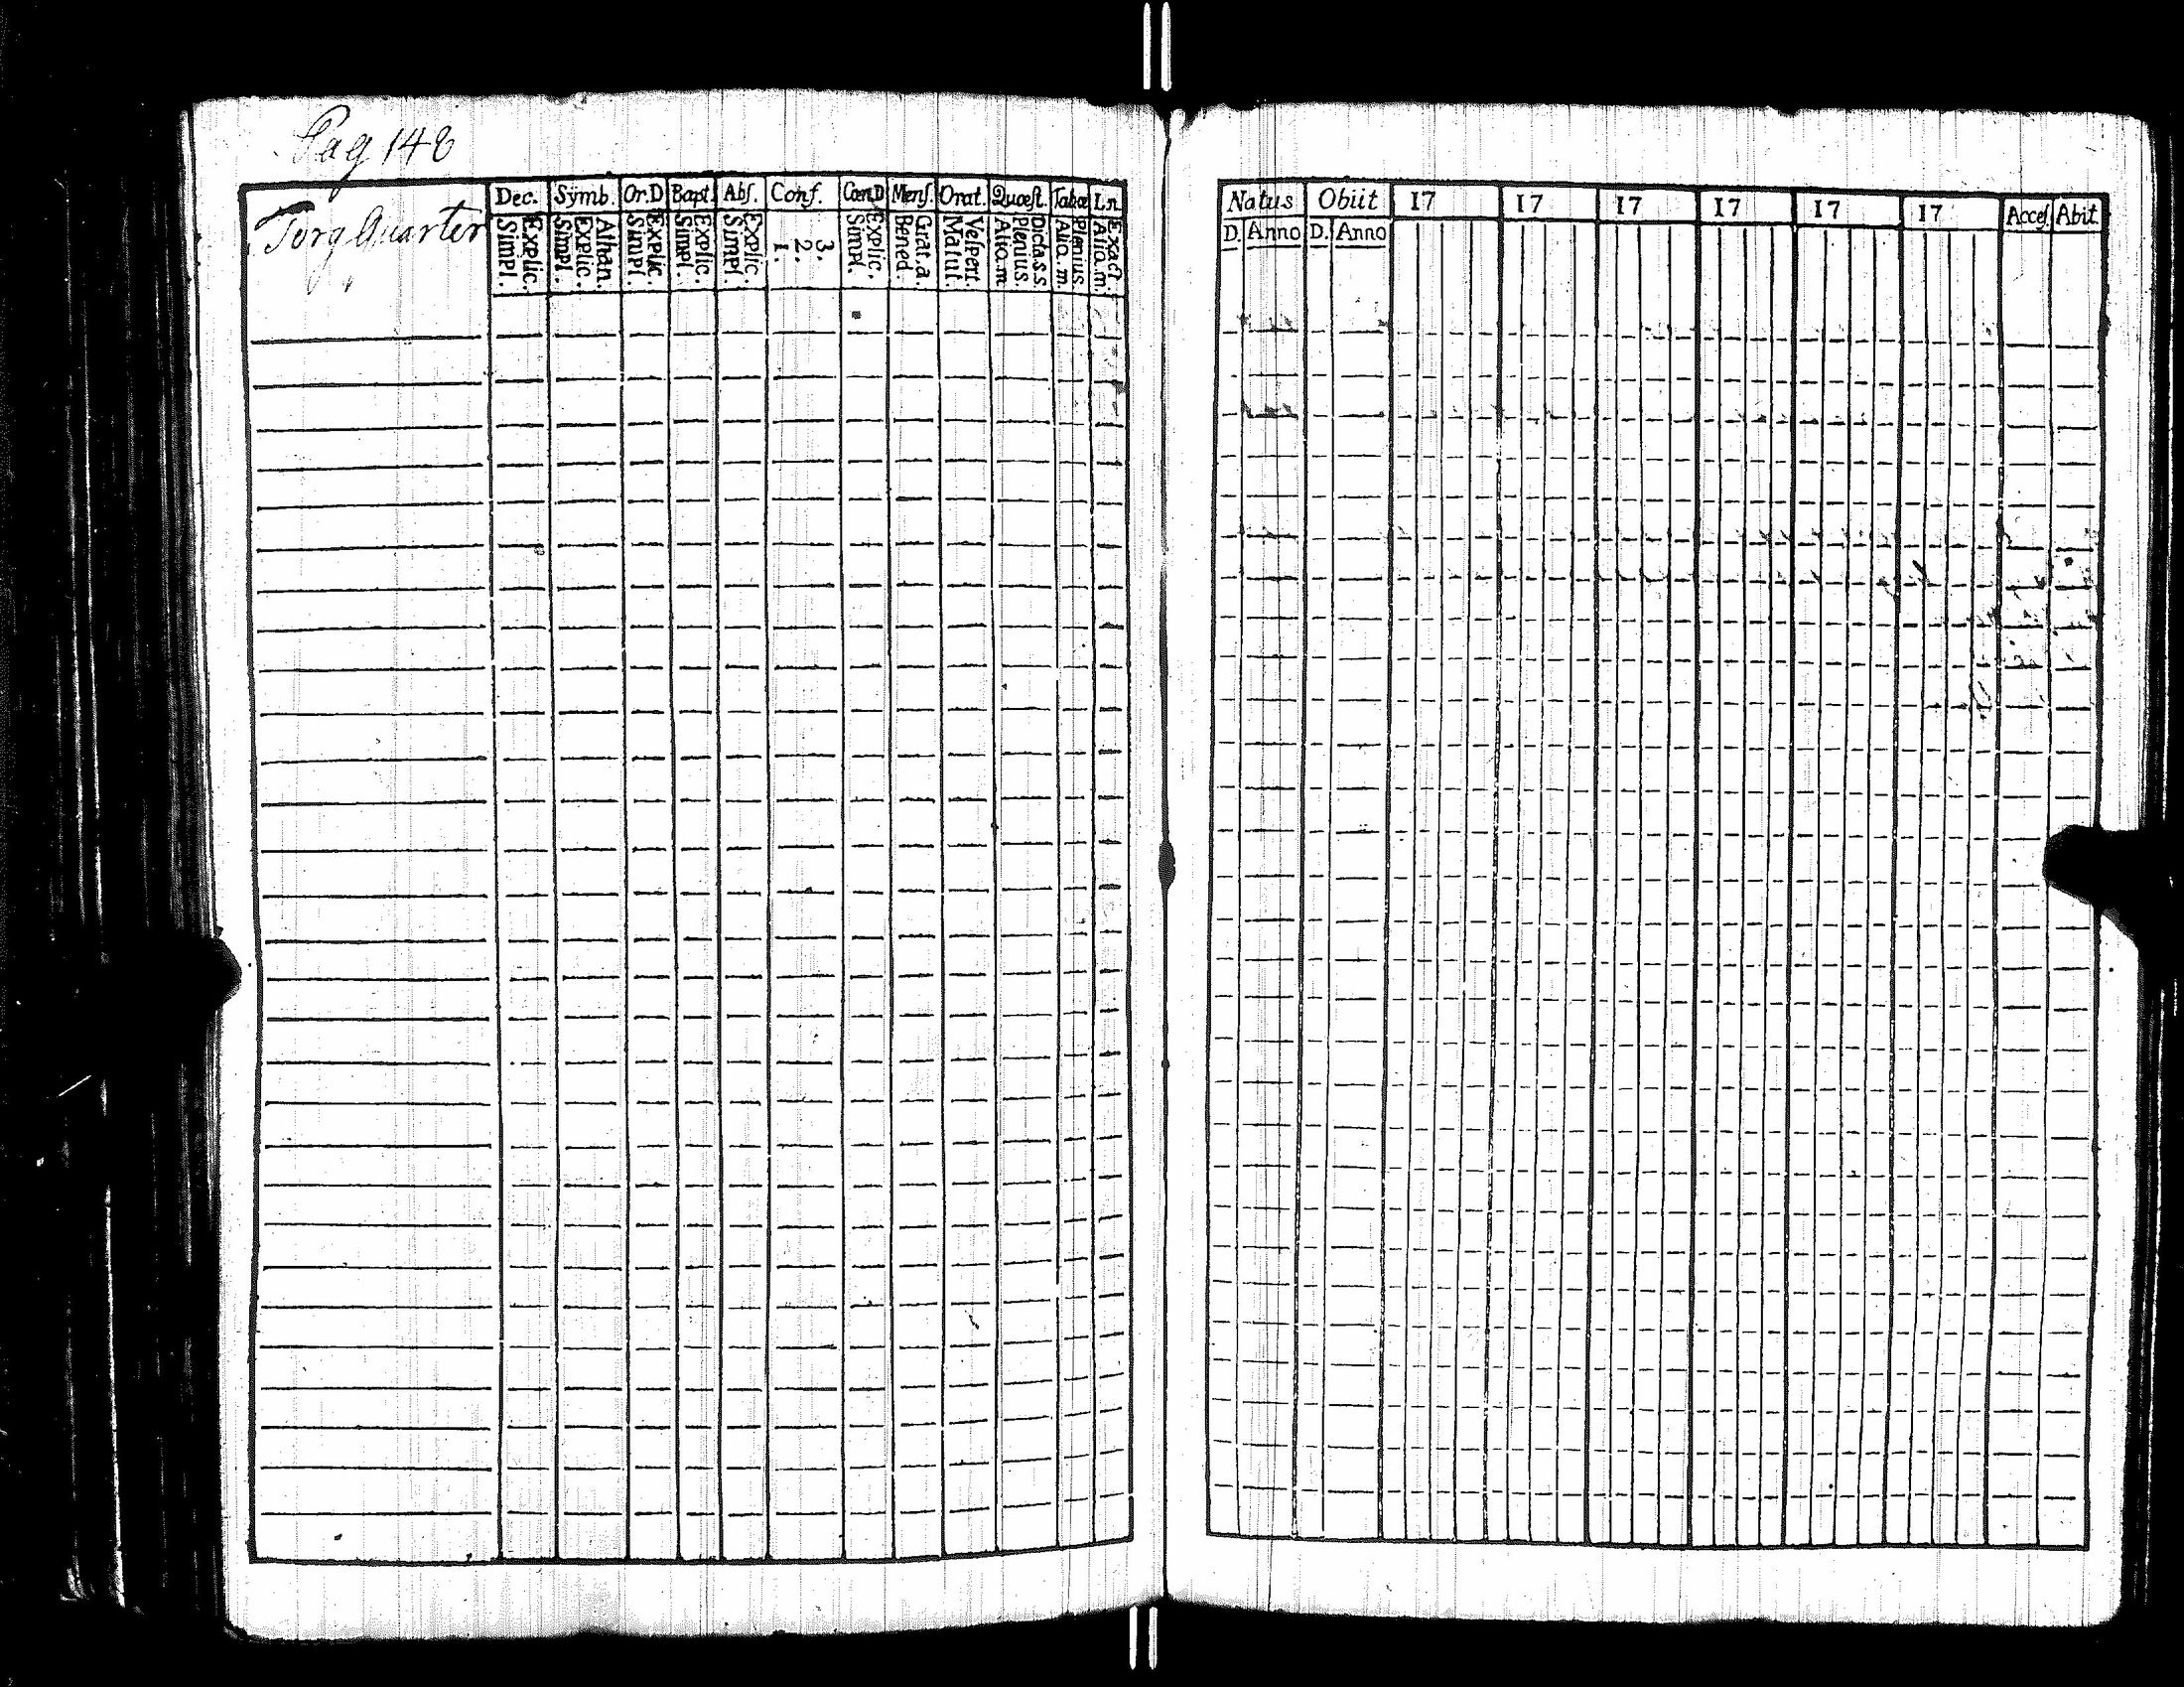 Pag 148
Torg Quarter
Dec. Sÿmb. Or.D Bapt. Abſ. Conf. Cœn.D Menſ. Orat. Quæſt. Tabæ L.n.
Explic. Simpl. Athan. Explic. Simpl. Explic. Simpl. Explic. Simpl. Explic. Simpl. 3. 2. 1. Explic. Simpl. Grat.a. Bened. Veſpert. Matut. Dicta.s.s Plenius. Aliq.m Plenius Aliq.m. Exact. Aliq.m.
Natus Obiit 17 17 17 17 17 17 Acceſ Abit
D. Anno D. Anno